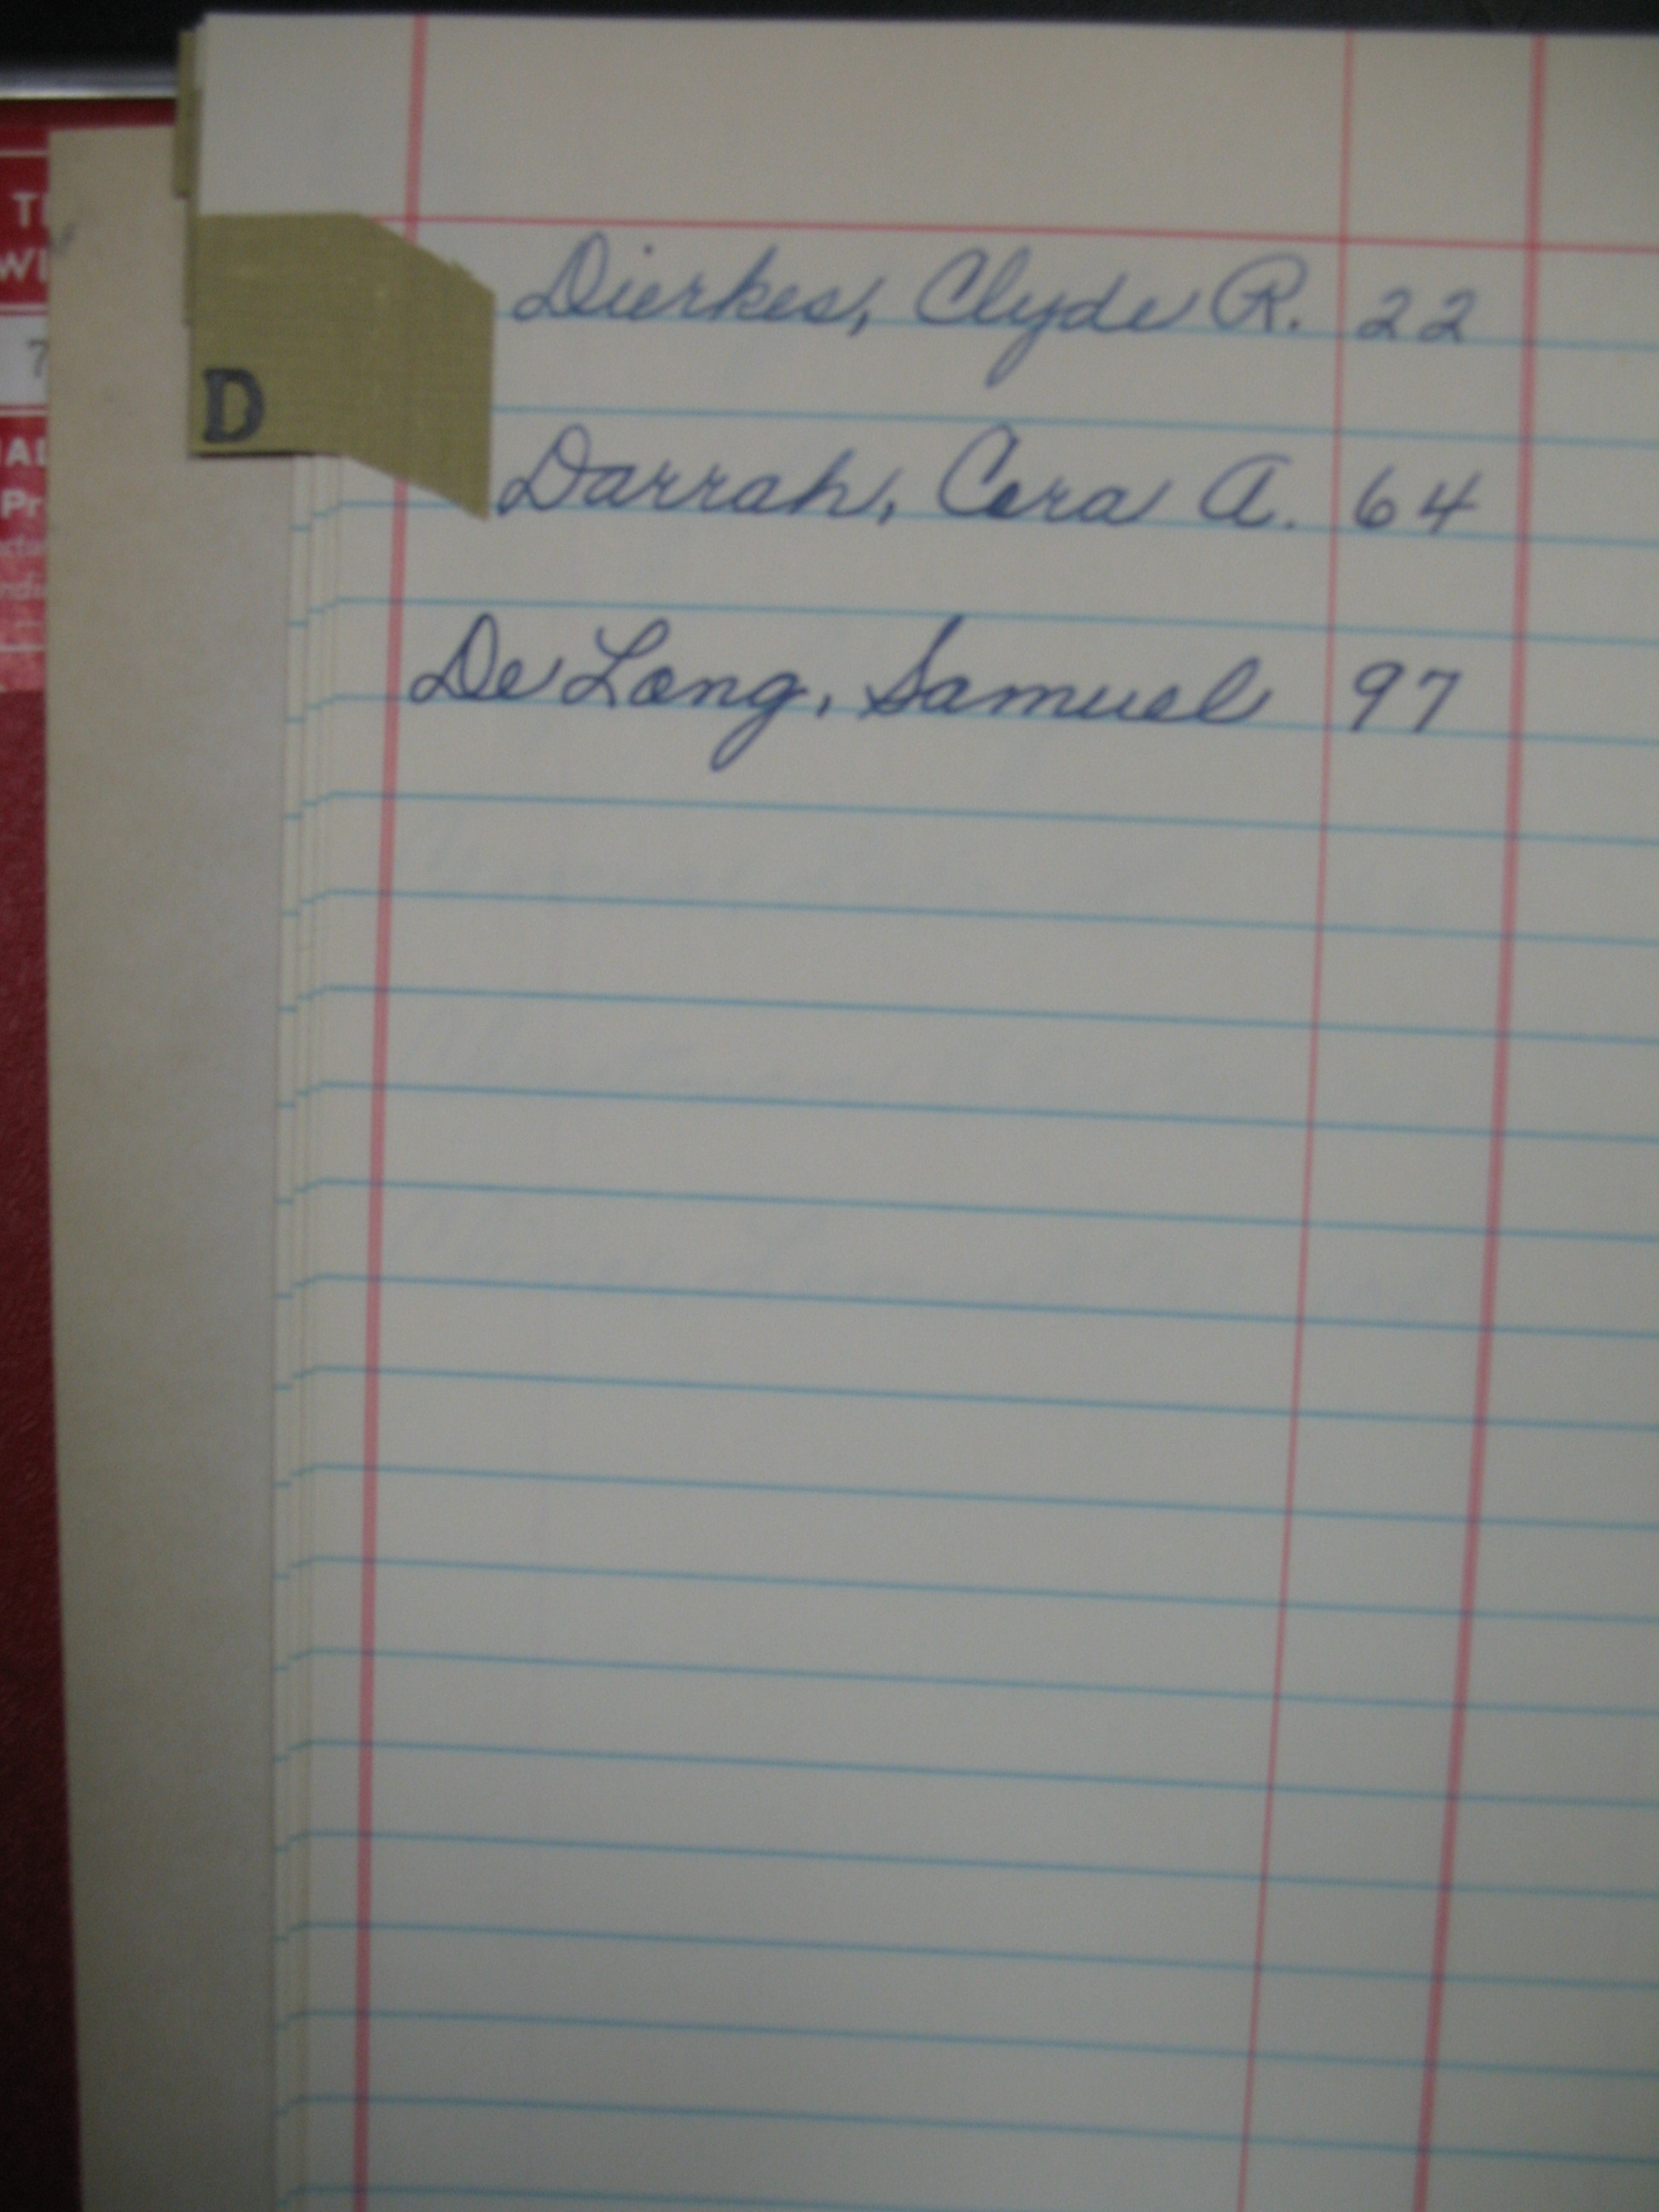 D
Dierkes, Clyde R. 22
Darrah, Cora A. 64
De Long, Samuel 97
7
Pr